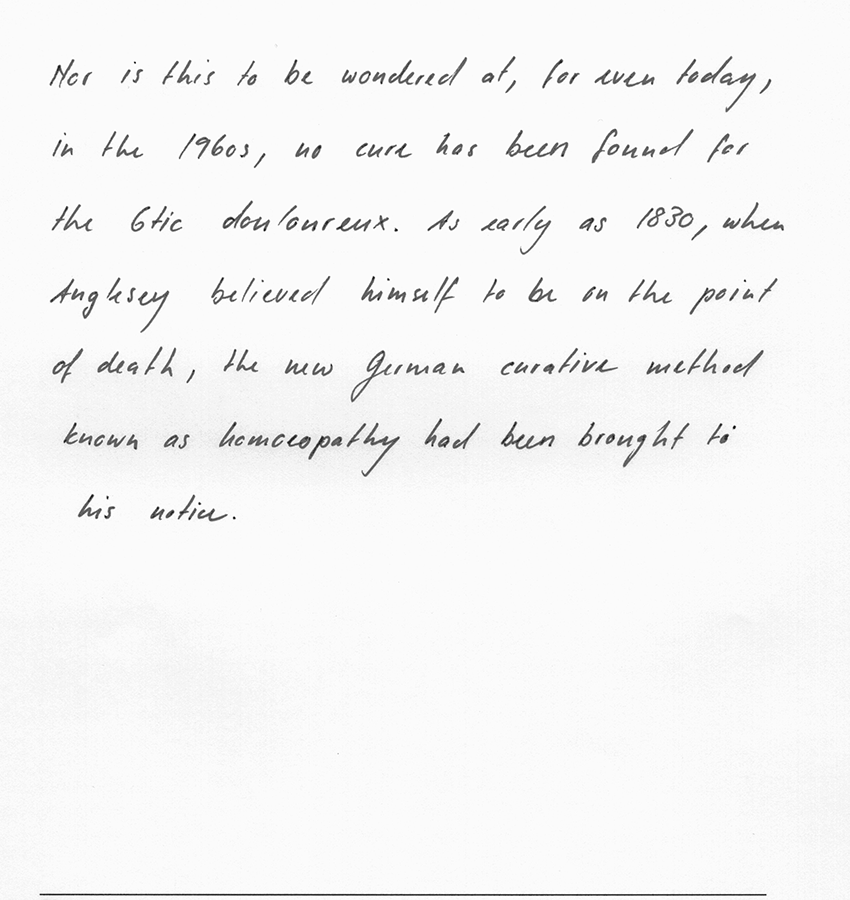 Nor is this to be wondered at, for even today,
in the 1960s, no cure has been found for
the 6tic douloureux. As early as 1830, when
Anglesey believed himself to be on the point
of death, the new German curative method
known as homoeopathy had been brought to
his notice.